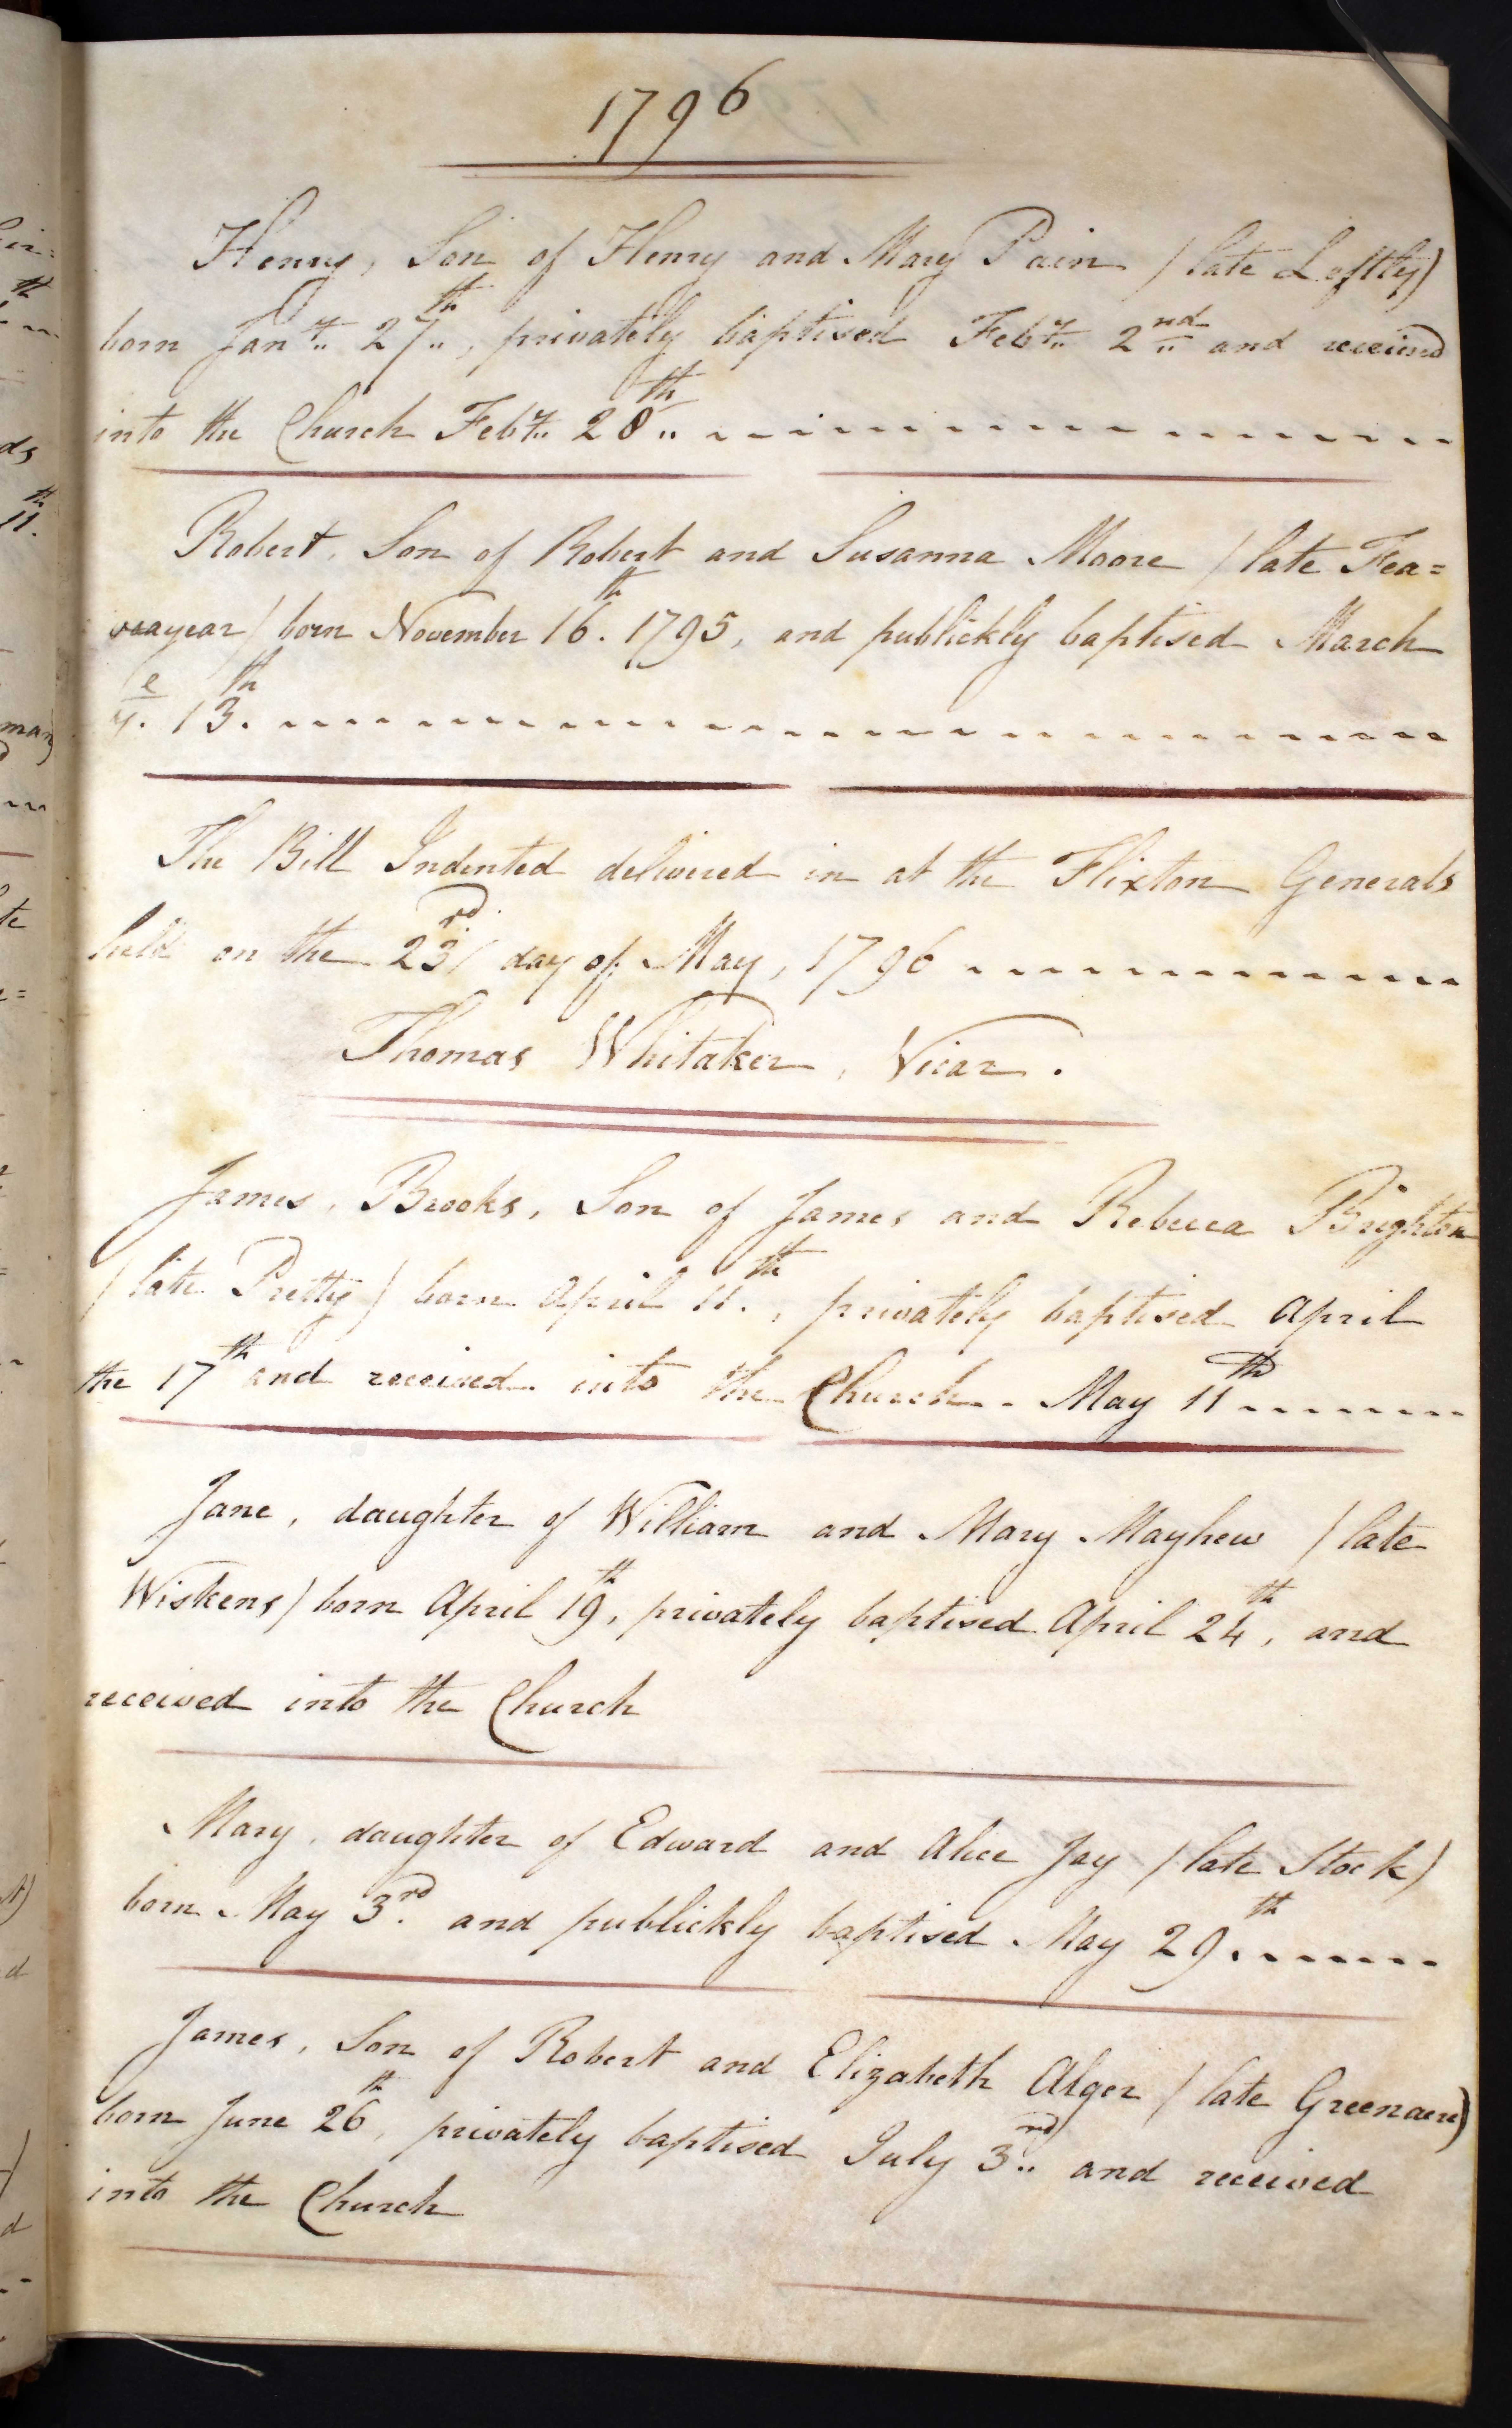 1796
Henry, Son of Henry and Mary Pain (late Loftty)
born Jan.ry 27th, privately baptised Feb.ry 2nd and received
into the Church Feb.ry 28th
Robert, Son of Robert and Susanna Moore (late Fea=
veayear) born November 16th. 1795, and publickly baptised March
ye. 13th.
The Bill Indented delivered in at the Flixton Generals
held on the 23rd day of May, 1796
Thomas Whitaker, Vicar.
James, Brooks, Son of James and Rebecca Brighton
(late Pretty) born April 11th., privately baptised April
the 17th and received into the Church May 11th
Jane, daughter of William and Mary Mayhew (late
Wiskens) born April 19th, privately baptised April 24th, and
received into the Church
Mary, daughter of Edward and Alice Jay (late Stock)
born May 3rd. and publickly baptised May 29th
James, Son of Robert and Elizabeth Alger (late Greenacre)
born June 26th, privately baptised July 3rd and received
into the Church